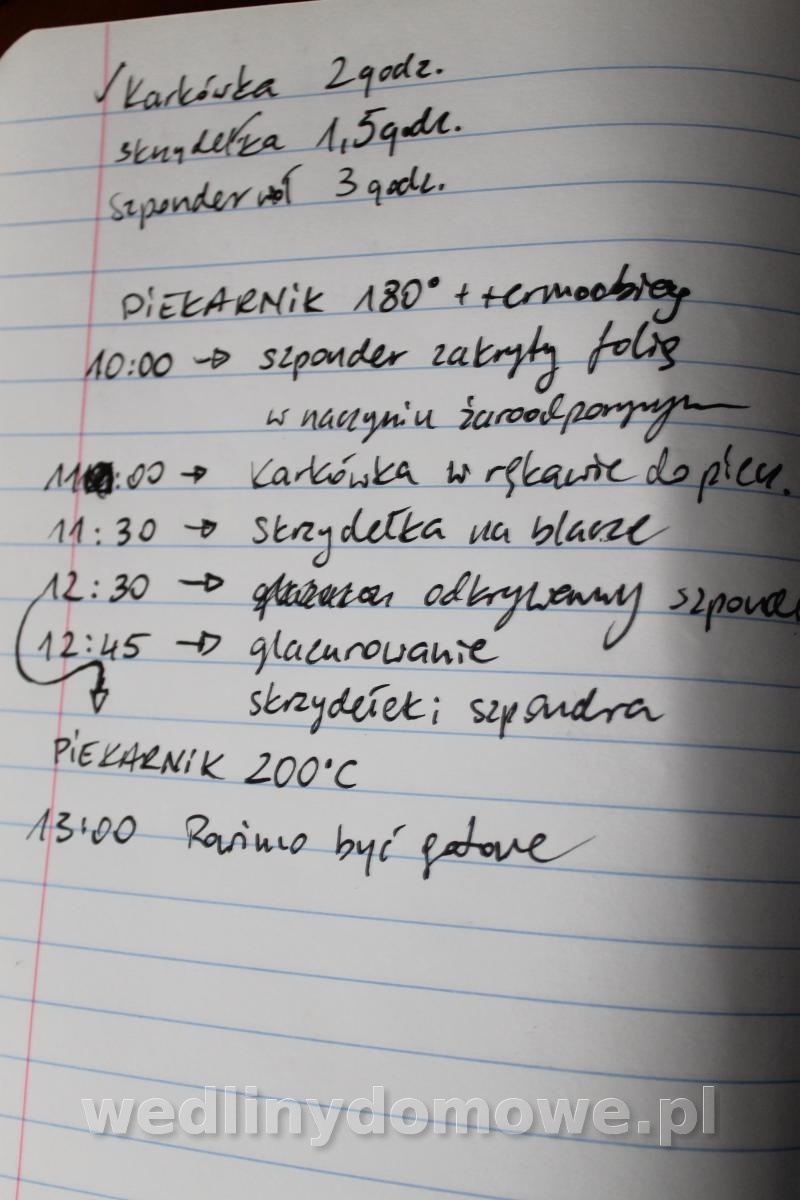 ✓ Karkówka 2 godz.
skrzydełka 1,5 godz.
szponder woł 3 godz.
PIEKARNIK 180° + termoobieg
10:00 → szponder zakryty folią
w naczyniu żaroodpornym
11:00 → Karkówka w rękawie do pieca.
11:30 → skrzydełka na blasze
12:30 → odkrywamy szponder
12:45 → glazurowanie
skrzydełek i szpondra
PIEKARNIK 200°C
13:00 być gotowe
wedlinydomowe.pl